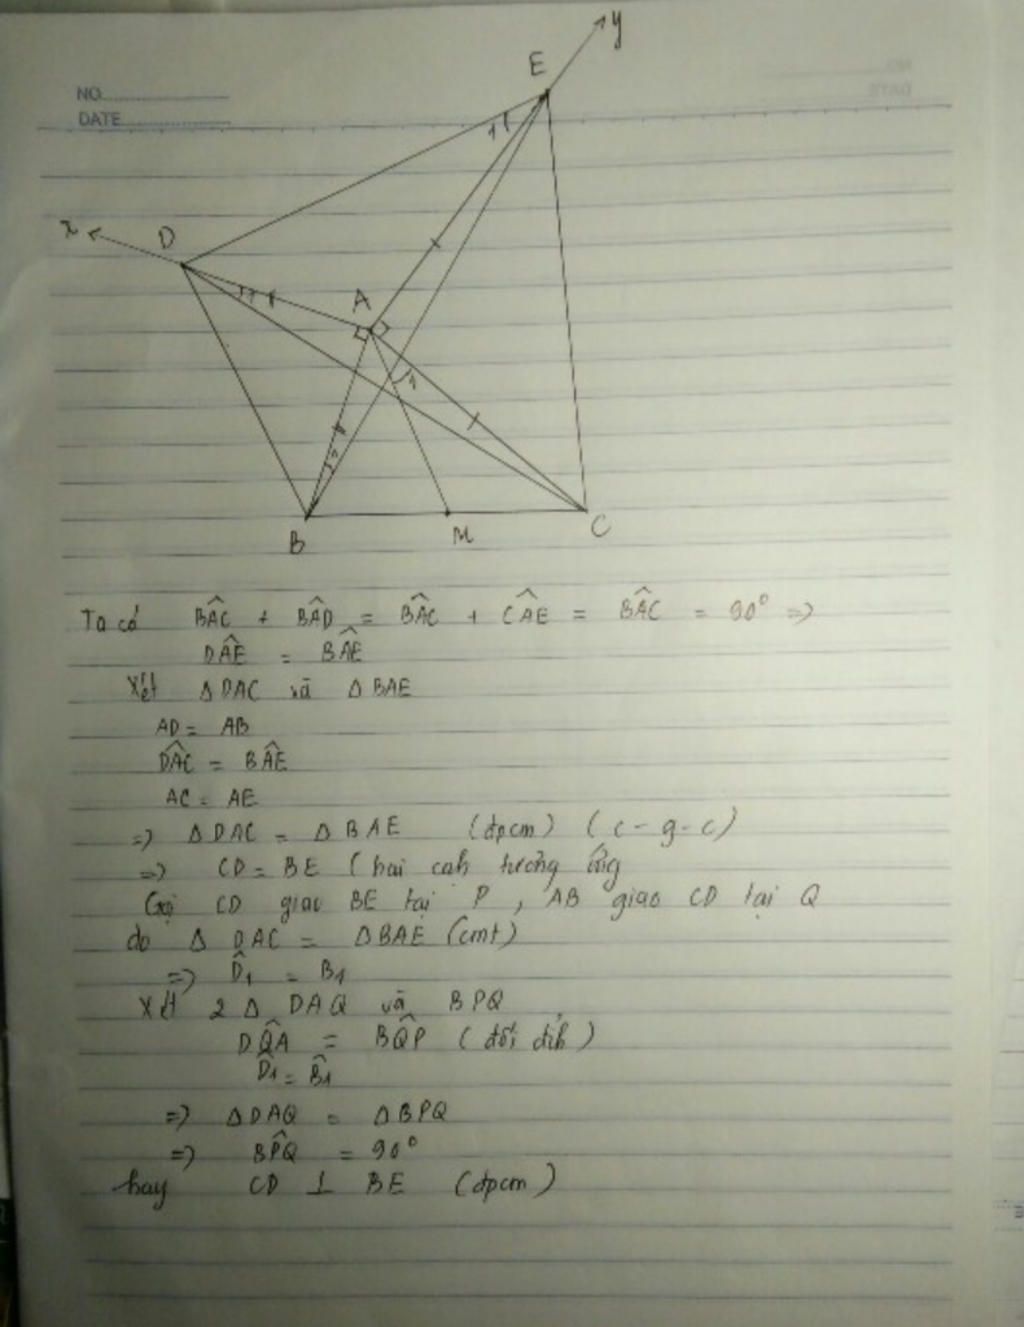 NO
DATE
y
E
1
x
D
1
A
1
B
M
C
Ta có BAC + BAD = BAC + CAE = BAC = 90° =>
DAE = BAE
Xét Δ DAC và Δ BAE
AD = AB
DAC = BAE
AC = AE
=> Δ DAC = Δ BAE (đpcm) (c-g-c)
=> CD = BE (hai cạh tương ứng
Gọi CD giao BE tại P, AB giao CD tại Q
do Δ DAC = Δ BAE (cmt)
=> D1 = B1
Xét 2 Δ DAQ và BPQ
DQA = BQP (đối đỉh)
D1 = B1
=> Δ DAQ = Δ BPQ
=> BPQ = 90°
hay CD ⊥ BE (đpcm)